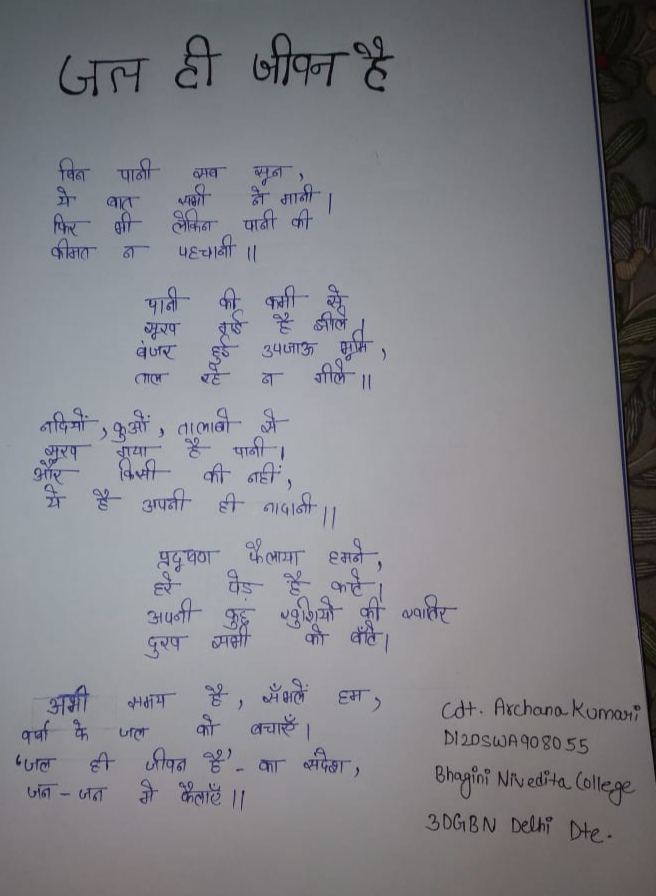 जल ही जीवन है
बिन पानी सब सून,
ये बात सभी ने मानी।
फिर भी लेकिन पानी की
कीमत न पहचानी॥
पानी की कमी से
सूख गई है झीलें।
बंजर हुई उपजाऊ भूमि,
ताल रहे न गीले॥
नदियों, कुओं, तालाबो से
सूख गया है पानी।
और किसी की नहीं,
ये है अपनी ही नादानी॥
प्रदूषण फैलाया हमने,
हरे पेड़ है काटे।
अपनी कुछ खुशियो की खातिर
दुख सभी को बाँटे।
अभी समय है, सँभलें हम,
वर्षा के जल को बचाएँ।
'जल ही जीवन है' - का संदेश,
जन - जन मे फैलाएँ॥
Cdt. Archana Kumari
DI20SWA908055
Bhagini Nivedita College
3DGBN Delhi Dte.